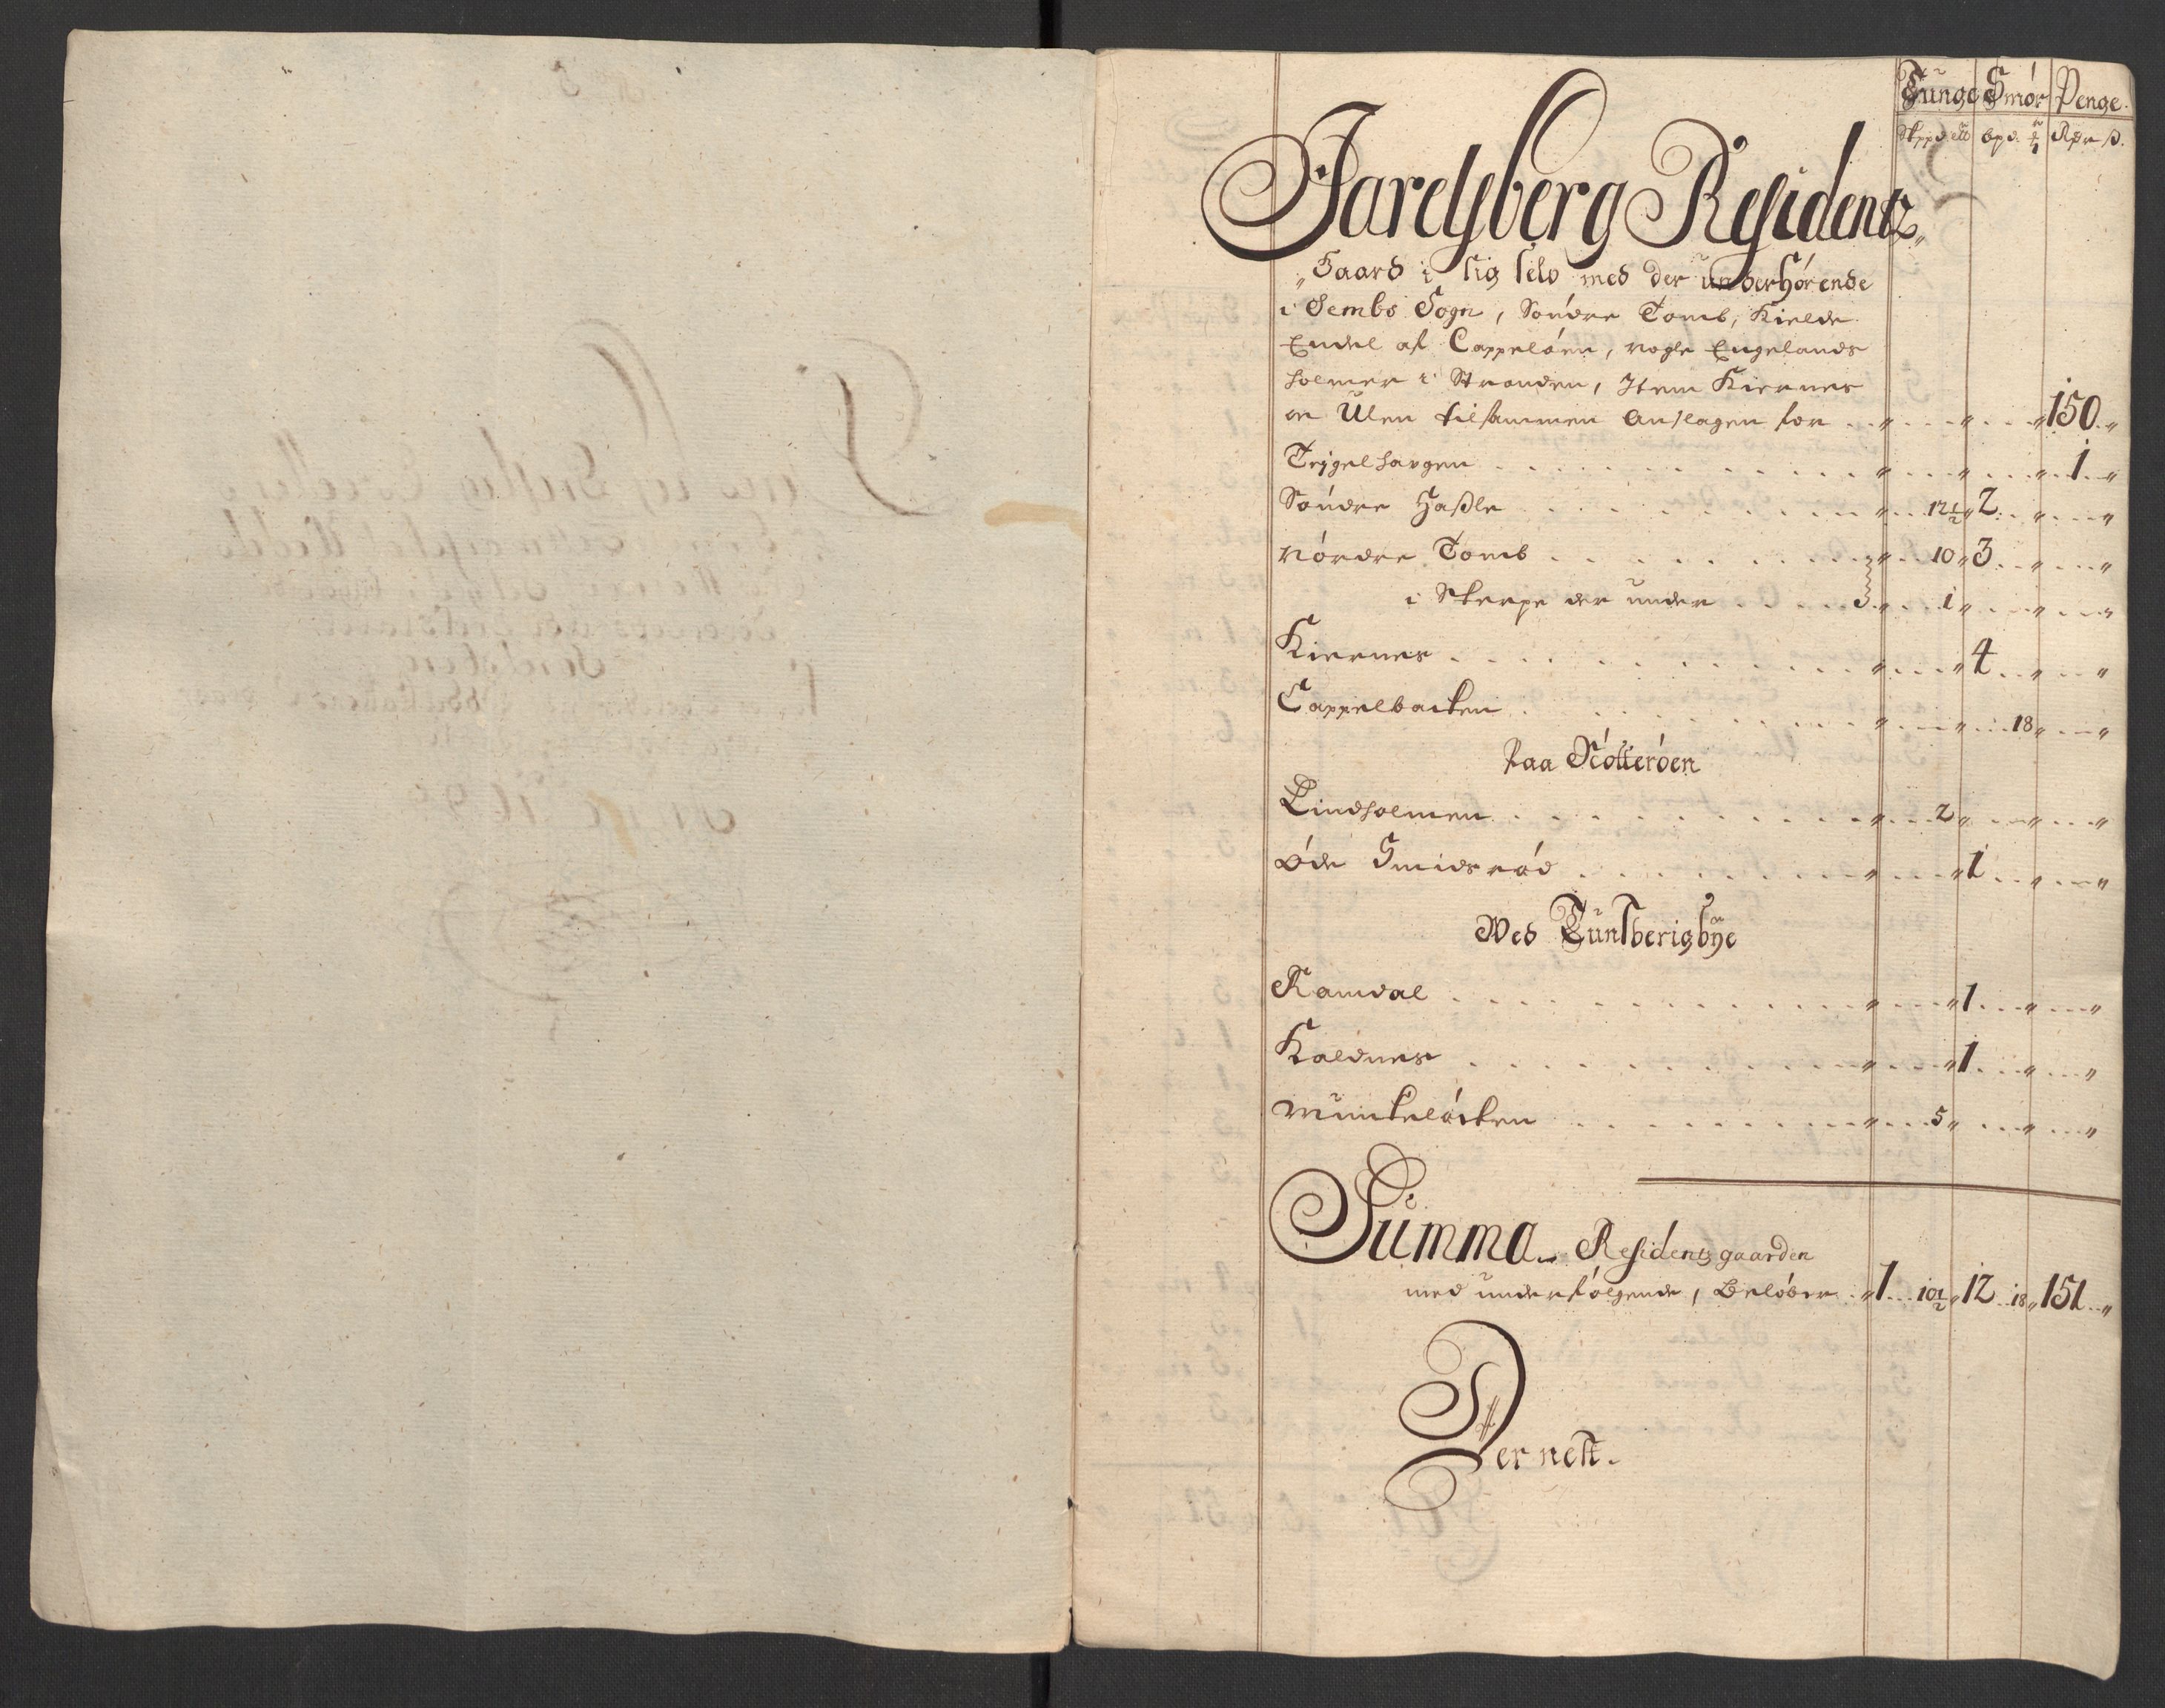 Tunge Smör Penge.
Skppd lld bpd. Rdr ß.
Jarelsberg Residentz
Gaard i sig selv med der underhörende
i Sembs Sogn, Söndre Tomb, Kielde
Endel af Cappelöen, nogle Engelands
holmer i Stranden, Item Kiernes
oe Ulen tilsammen Anslagen for 150
Teÿgelhavgen 1
Söndre Haßle 12½ 2
Nördre Tomb 10 3
i Skerpe der under 1
Kiernes 4
Cappelbacken 18
Paa Nötteröen
Lindholmen 2
öde Smidsröd 1
Wed Tunsberigbÿe
Ramdal 1
Kaldnes 1
Munkelöcken 5
Summa Residentzgaarden
med underfölgende, Belöber 1 10½ 12 18 151
Der nest.